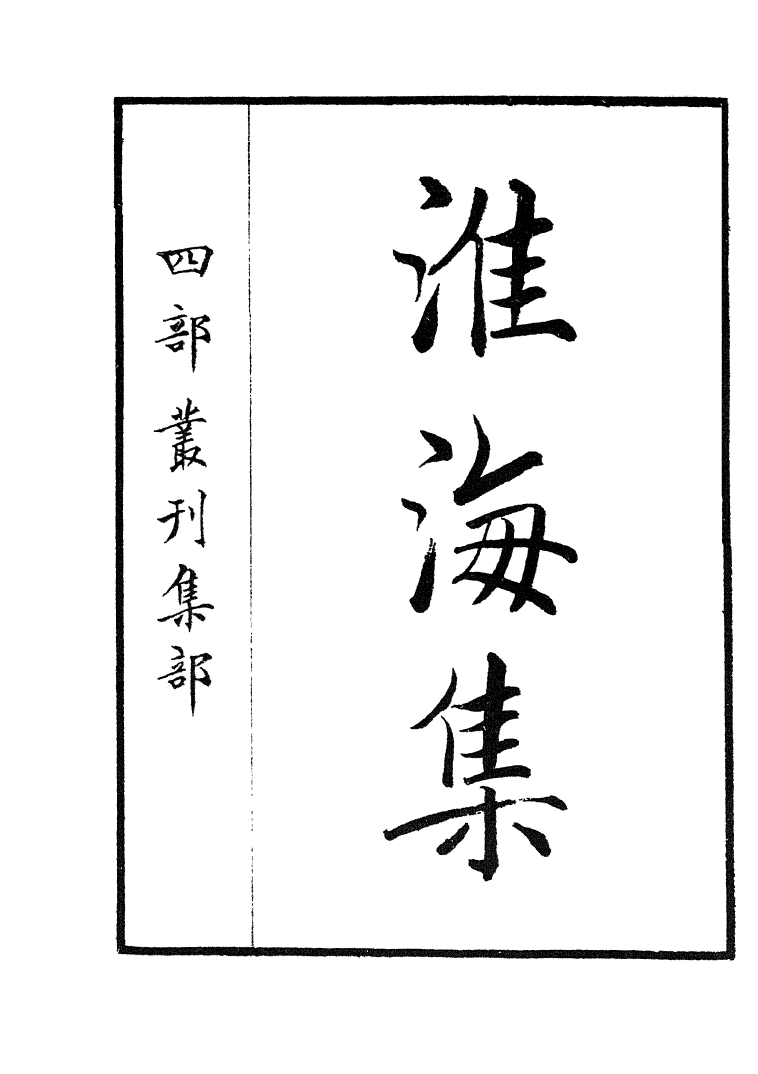 淮海集
四部叢刊集部